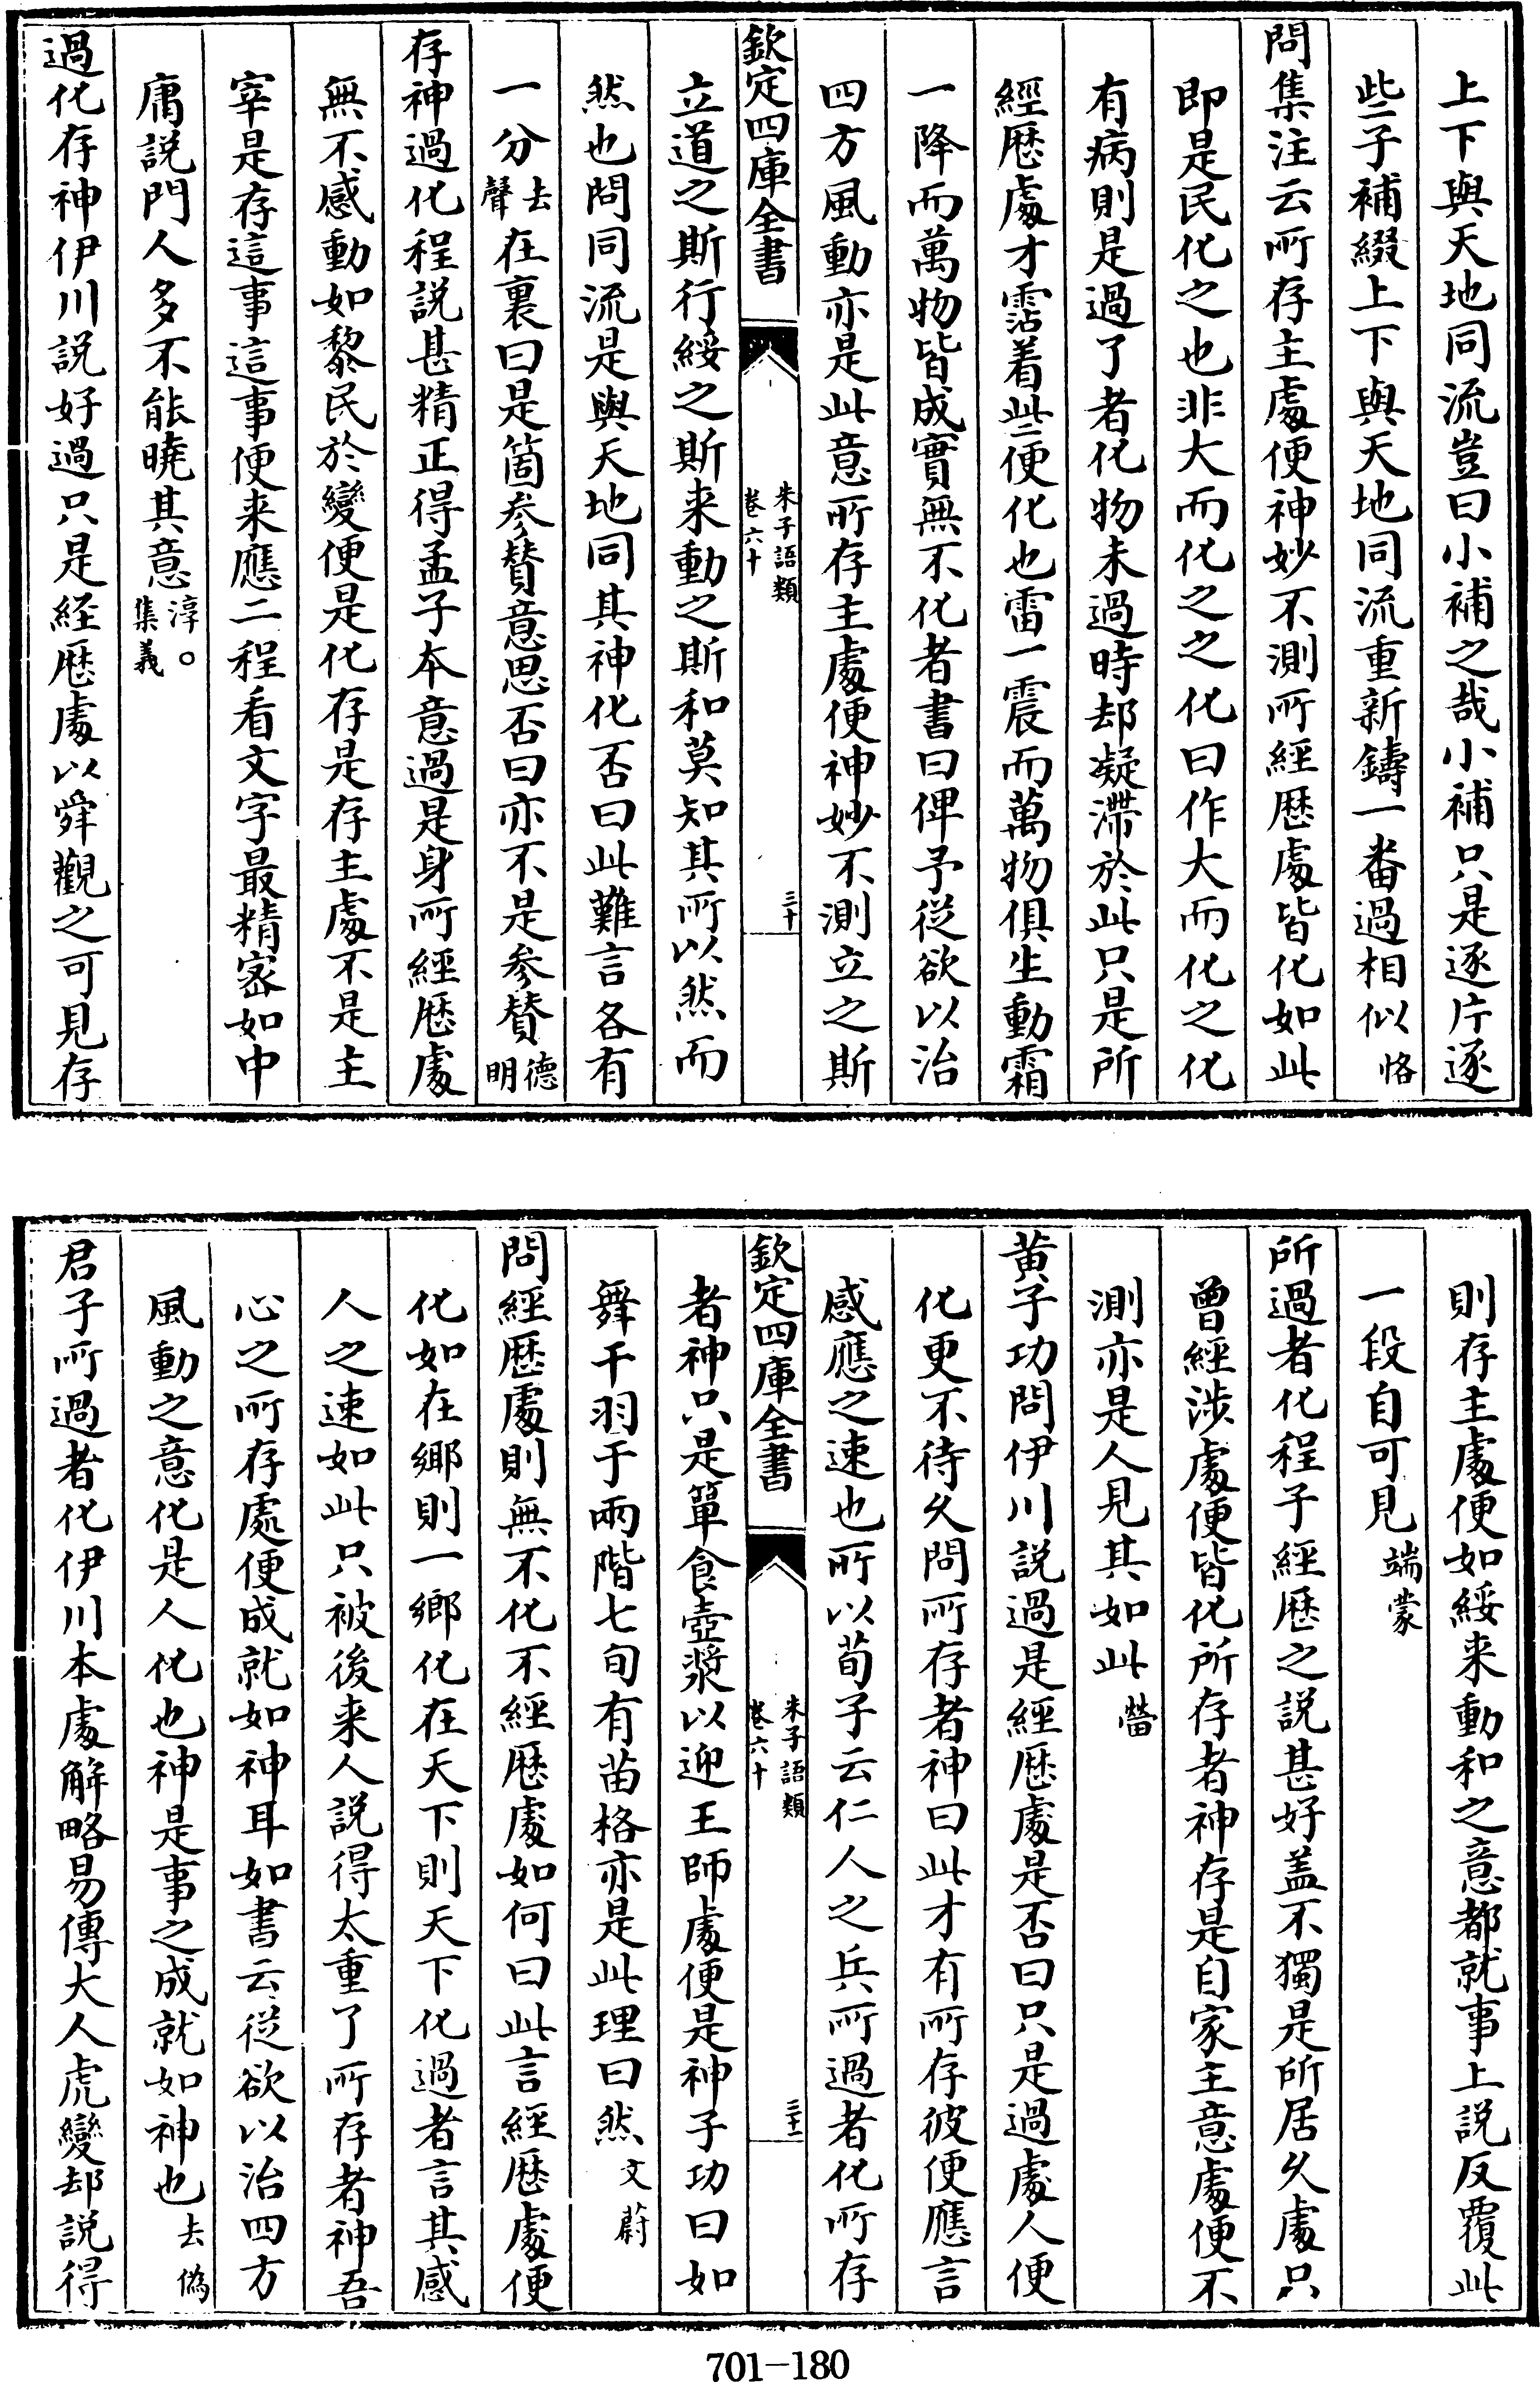 上下與天地同流豈曰小補之哉小補只是逐片逐
些子補綴上下與天地同流重新鑄一番過相似恪
問集注云所存主處便神妙不測所經歷處皆化如此
即是民化之也非大而化之之化曰作大而化之化
有病則是過了者化物未過時却凝滯於此只是所
經歷處才霑着些便化也雷一震而萬物俱生動霜
一降而萬物皆成實無不化者書曰俾予從欲以治
四方風動亦是此意所存主處便神妙不測立之斯
欽定四庫全書
朱子語類
卷六十
三十
立道之斯行綏之斯来動之斯和莫知其所以然而
然也問同流是與天地同其神化否曰此難言各有
一分去聲在裏曰是箇參贊意思否曰亦不是參贊德明
存神過化程説甚精正得孟子本意過是身所經歷處
無不感動如黎民於變便是化存是存主處不是主
宰是存這事這事便来應二程看文字最精密如中
庸説門人多不能曉其意淳○集義
過化存神伊川説好過只是経歷處以舜觀之可見存
則存主處便如綏来動和之意都就事上説反覆此
一段自可見端蒙
所過者化程子經歷之説甚好盖不獨是所居久處只
曾經涉處便皆化所存者神存是自家主意處便不
測亦是人見其如此㽦
黄子功問伊川説過是經歷處是否曰只是過處人便
化更不待久問所存者神曰此才有所存彼便應言
感應之速也所以荀子云仁人之兵所過者化所存
欽定四庫全書
朱子語類
卷六十
三十一
者神只是簞食壺漿以迎王師處便是神子功曰如
舞干羽于兩階七旬有苗格亦是此理曰然文蔚
問經歷處則無不化不經歷處如何曰此言經歷處便
化如在鄉則一鄉化在天下則天下化過者言其感
人之速如此只被後来人説得太重了所存者神吾
心之所存處便成就如神耳如書云從欲以治四方
風動之意化是人化也神是事之成就如神也去偽
君子所過者化伊川本處解略易傳大人虎變却説得
701-180